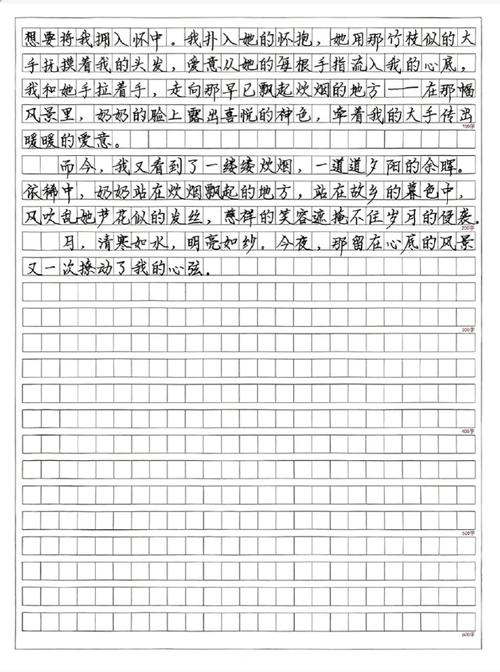 想要将我拥入怀中。我扑入她的怀抱，她用那竹枝似的大
手抚摸着我的头发，爱意从她的每根手指流入我的心底，
我和她手拉着手，走向那早已飘起炊烟的地方——在那幅
风景里，奶奶的脸上露出喜悦的神色，牵着我的大手传出
100字
暖暖的爱意。
而今，我又看到了一缕缕炊烟，一道道夕阳的余晖。
依稀中，奶奶站在炊烟飘起的地方，站在故乡的暮色中，
风吹乱她芦花似的发丝，慈祥的笑容遮掩不住岁月的侵袭。
200字
月，清寒如水，明亮如纱。今夜，那留在心底的风景
又一次撩动了我的心弦。
300字
400字
500字
600字